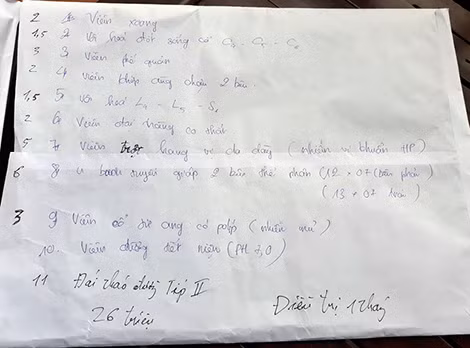 2 1. Viêm xoang
1,5 2 Vôi hoá đốt sống cổ C3 - C5 - C6
3 3 Viêm phế quản
2 4 viêm khớp cùng chậu 2 bên.
1,5 5 Vôi hoá L4 - L5 - S1
2 6 Viêm đại tràng co thắt
5 7 Viêm trợt hang vị dạ dày (nhiễm vi khuẩn HP)
6 8 u bánh tuyến giáp 2 bên thể phân (12 * 07 (bên phải)
(13 * 07 trái)
3 9 Viêm cổ tử cung có polip (nhiễm nữ)
10. Viêm đường tiết niệu (PH 7,0)
11 Đái tháo đường Tip II
26 triệu Điều trị 1 tháng